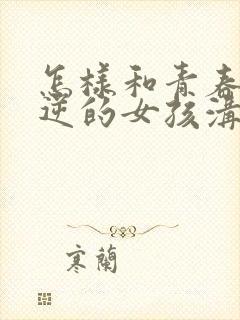 怎樣和青春
逆的女孩溝
寒蘭